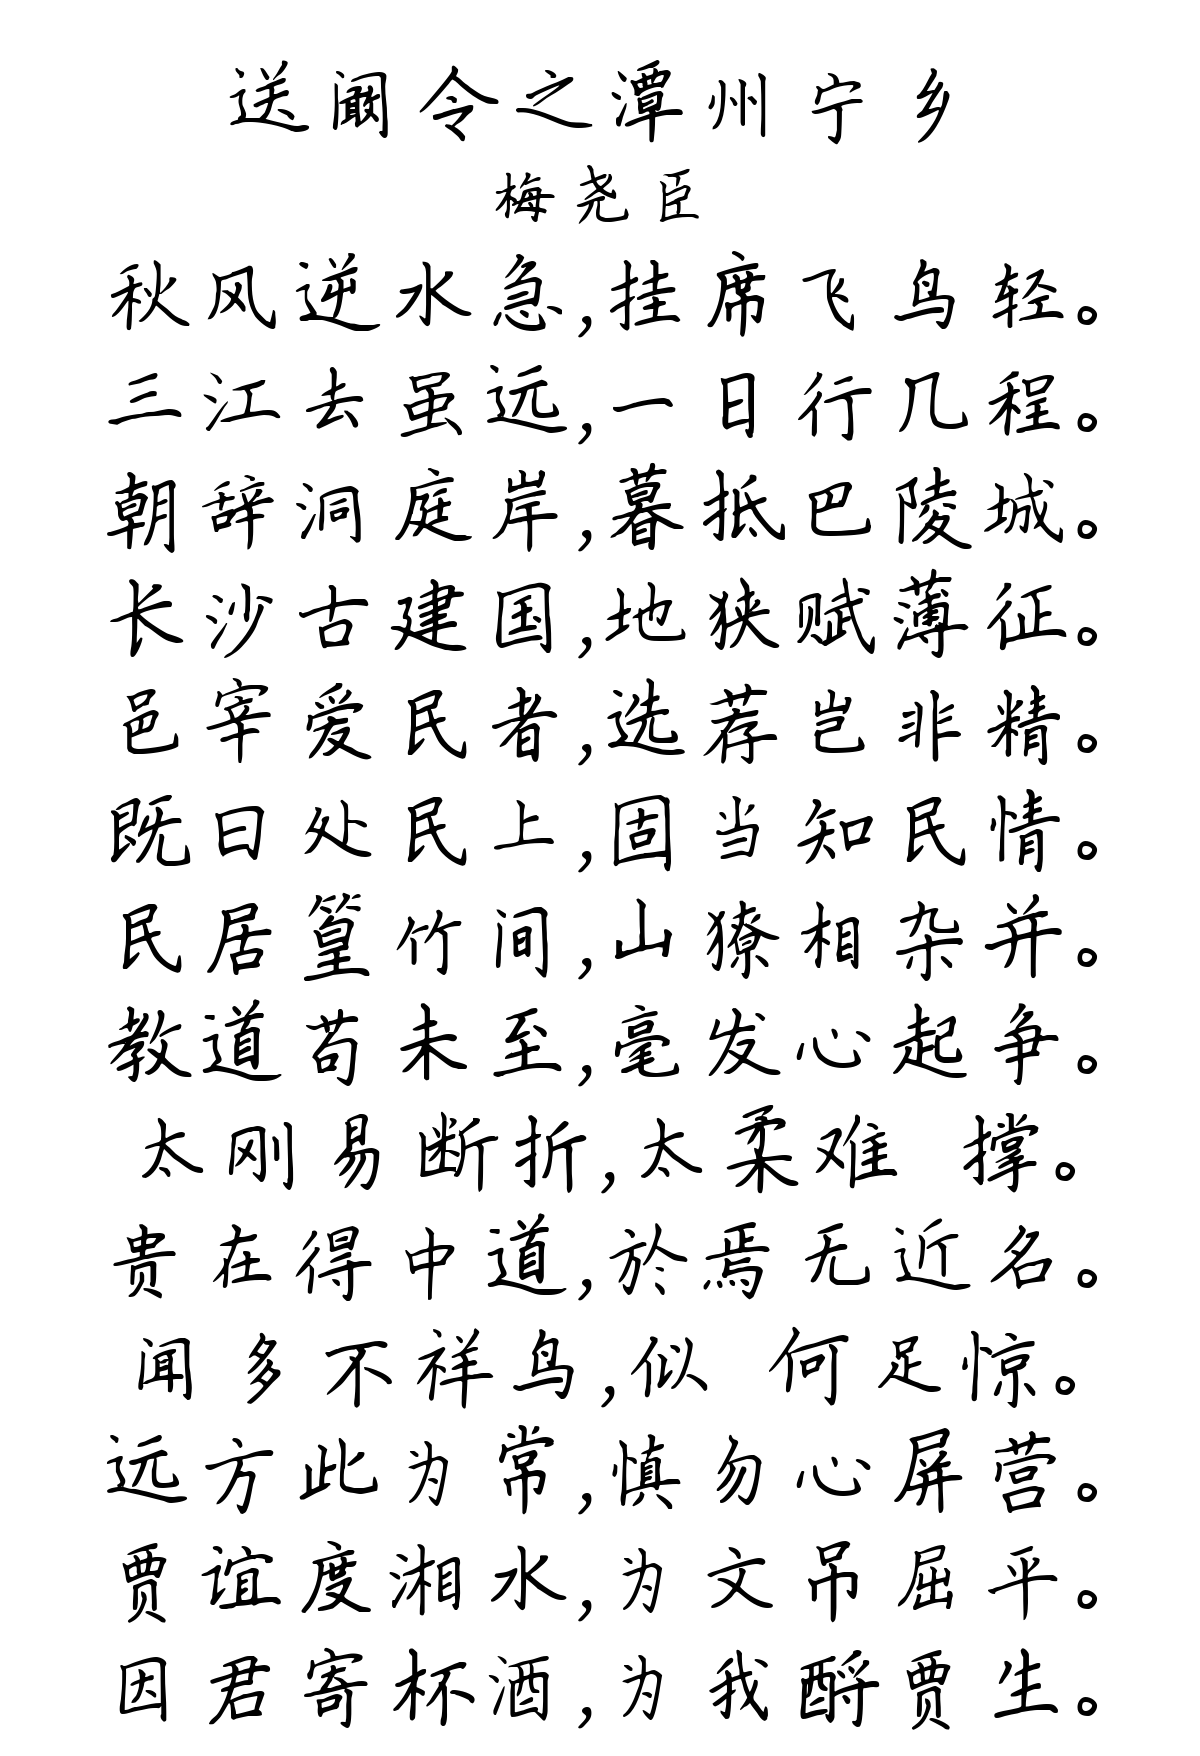 送阚令之潭州宁乡
梅尧臣
秋风逆水急,挂席飞鸟轻。
三江去虽远,一日行几程。
朝辞洞庭岸,暮抵巴陵城。
长沙古建国,地狭赋薄征。
邑宰爱民者,选荐岂非精。
既曰处民上,固当知民情。
民居篁竹间,山獠相杂并。
教道苟未至,毫发心起争。
太刚易断折,太柔难 撑。
贵在得中道,於焉无近名。
闻多不祥鸟,似 何足惊。
远方此为常,慎勿心屏营。
贾谊度湘水,为文吊屈平。
因君寄杯酒,为我酹贾生。